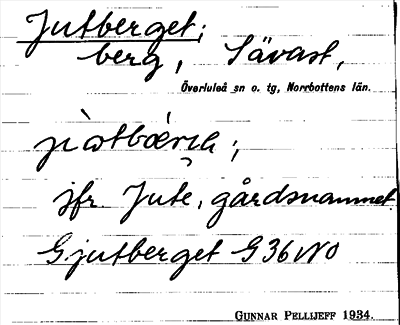 Jutberget;
berg, Sävast,
Överluleå sn o. tg, Norrbottens län.
jfr. Jute, gårdsnamnet
Gjutberget G36NO
GUNNAR PELLIJEFF 1934.